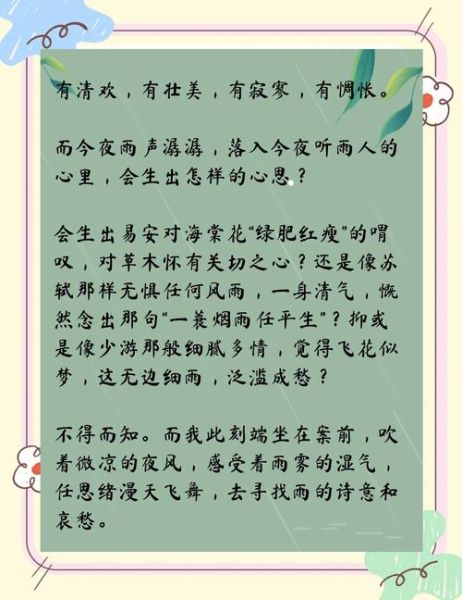 有清欢，有壮美，有寂寥，有惆怅。
而今夜雨声潺潺，落入今夜听雨人的
心里，会生出怎样的心思？
会生出易安对海棠花“绿肥红瘦”的喟
叹，对草木怀有关切之心？还是像苏
轼那样无惧任何风雨，一身清气，慨
然念出那句“一蓑烟雨任平生”？抑或
是像少游那般细腻多情，觉得飞花似
梦，这无边细雨，泛滥成愁？
不得而知。而我此刻端坐在案前，吹
着微凉的夜风，感受着雨雾的湿气，
任思绪漫天飞舞，去寻找雨的诗意和
哀愁。